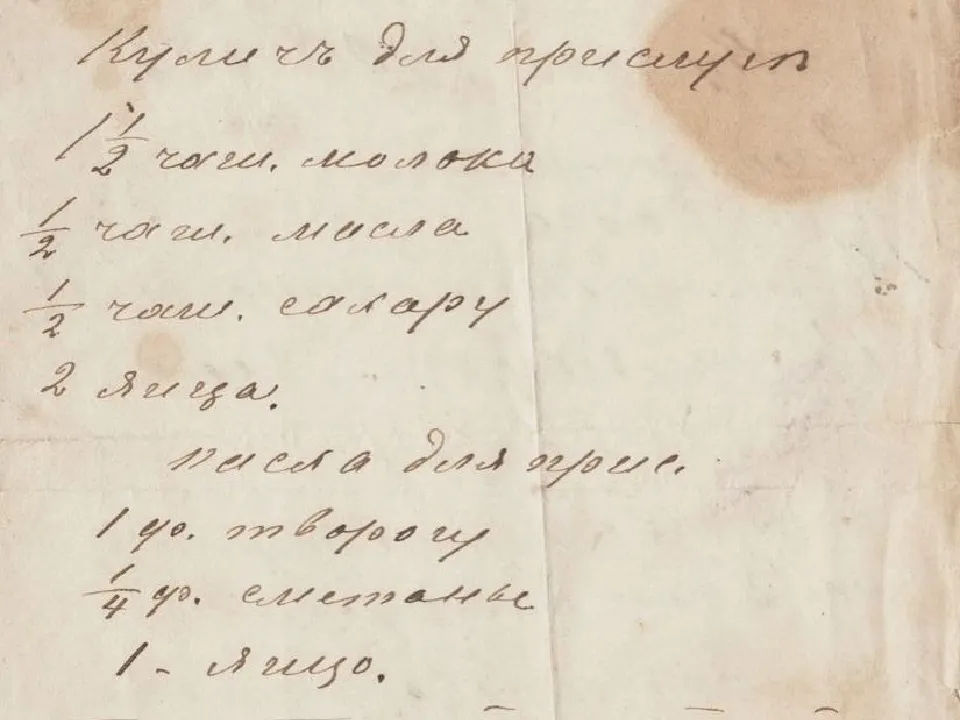 Куличъ для прислуги
1 1/2 чаш. молока
1/2 чаш. масла
1/2 чаш. сахару
2 яица.
пасха для прис.
1 ф. творогу
1/4 ф. сметаны
1 - яицо.